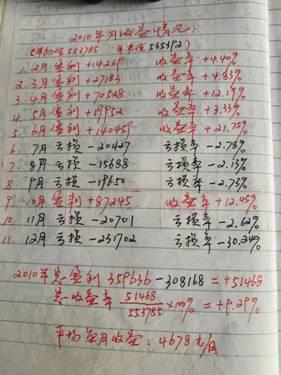 2010年月收益情况:
(年初值553785 年末值565392)
1. 2月盈利+14269 收益率+4.40%
2. 3月盈利+27183 收益率+4.83%
3. 4月盈利+70528 收益率+12.19%
4. 5月盈利+19952 收益率+3.33%
5. 6月盈利+140459 收益率+21.75%
6 7月亏损-20427 亏损率-2.78%
7 8月亏损-15688 亏损率-2.15%
8 9月亏损-19650 亏损率-2.73%
9 10月盈利+87245 收益率+12.45%
10 11月亏损-20701 亏损率-2.62%
11 12月亏损-231702 亏损率-30.24%
2010年总盈利359636-308168=+51468
总收益率 51468/553785×100%=+9.29%
平均每月收益:4678元/月